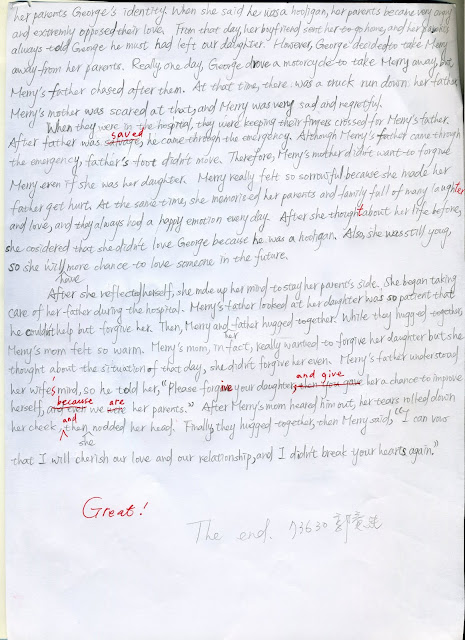 her parents George's identity. When she said he was a hooligan, her parents became very angry
and extremly opposed their love. From that day, her boyfriend sent her to go home, and her parents
always told George he must had left our daughter. However, George decided to take Merry
away from her parents. Really, one day, George drove a motorcycle to take Merry away, but
Merry's father chased after them. At that time, there was a truck run down her father.
Merry's mother was scared at that, and Merry was very sad and regretful.
When they were in the hospital, they were keeping their fingers crossed for Merry's father.
saved
After father was salvage, he came through the emergency. Although Merry's father came through
the emergency, father's foot didn't move. Therefore, Merry's mother didn't want to forgive
Merry even if she was her daughter. Merry really felt so sorrowful because she made her
father get hurt. At the same time, she memoried her parents and family full of many laughter
and love, and they always had a happy emotion every day. After she thought about her life before,
she cosidered that she didn't love George because he was a hooligan. Also, she was still young,
so she will more chance to love someone in the future.
have
After she reflected herself, she made up her mind to stay her parent's side. She began taking
care of her father during the hospital. Merry's father looked at her daughter was so patient that
he couldn't help but forgive her. Then, Merry and father hugged together. While they hugged together,
her
Merry's mom felt so warm. Merry's mom, in fact, really wanted to forgive her daughter but she
thought about the situation of that day, she didn't forgive her even. Merry's father understood
and give
her wife's mind, so he told her, "Please forgive your daughter, then you gave her a chance to improve
because are
herself, and ever we were her parents." After Merry's mom heard him out, her tears rolled down
and
her check, then nodded her head. Finally, they hugged together, then Merry said, "I can vow
she
that I will cherish our love and our relationship, and I didn't break your hearts again."
Great!
The end. 73630